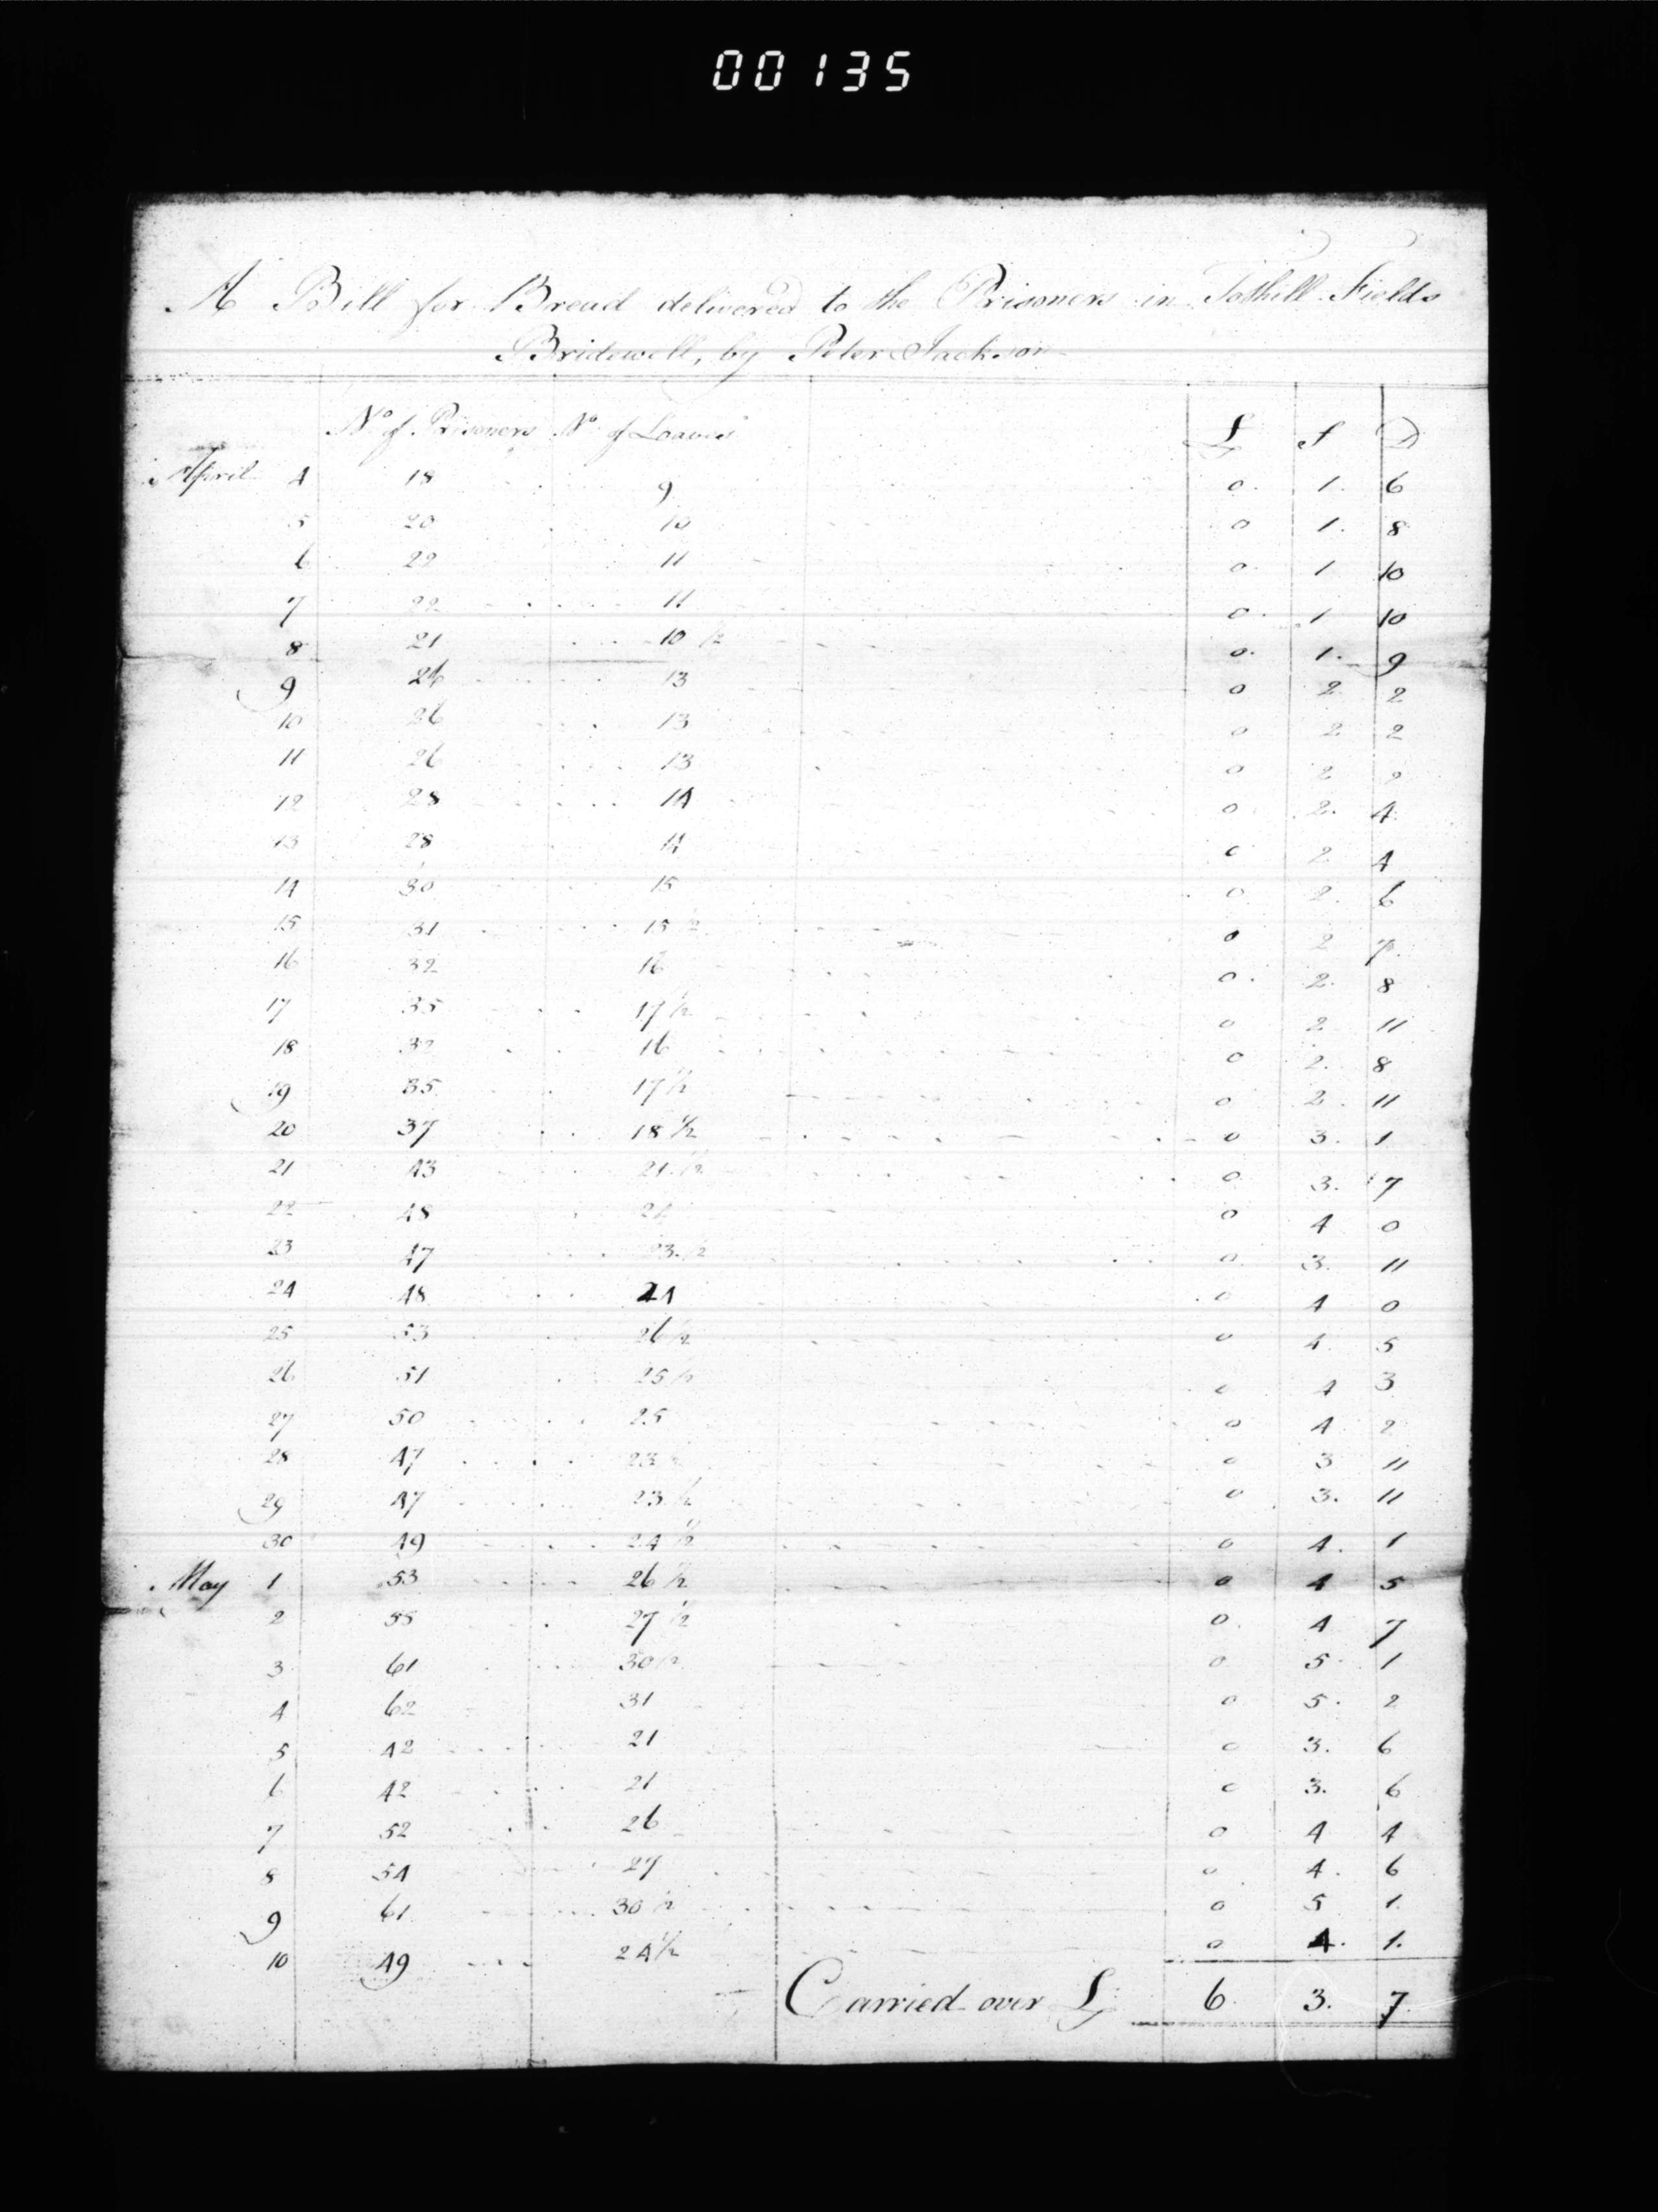 00135
A Bill for Bread delivered to the Prisoners in Tothill Fields
Bridewell, by Peter Jackson
No. of Prisoners No. of Loaves £ S D
April 4 18 9 0 1 6
5 20 10 0 1 8
6 22 11 0 1 10
7 22 11 0 1 10
8 21 10 1/2 0 1 9
9 26 13 0 2 2
10 26 13 0 2 2
11 26 13 0 2 2
12 28 14 0 2 4
13 28 14 0 2 4
14 30 15 0 2 6
15 31 15 1/2 0 2 7
16 32 16 0 2 8
17 35 17 1/2 0 2 11
18 32 16 0 2 8
19 35 17 1/2 0 2 11
20 37 18 1/2 0 3 1
21 43 21 1/2 0 3 7
22 48 24 0 4 0
23 47 23 1/2 0 3 11
24 48 24 0 4 0
25 53 26 1/2 0 4 5
26 51 25 1/2 0 4 3
27 50 25 0 4 2
28 47 23 1/2 0 3 11
29 47 23 1/2 0 3 11
30 49 24 1/2 0 4 1
May 1 53 26 1/2 0 4 5
2 55 27 1/2 0 4 7
3 61 30 1/2 0 5 1
4 62 31 0 5 2
5 42 21 0 3 6
6 42 21 0 3 6
7 52 26 0 4 4
8 54 27 0 4 6
9 61 30 1/2 0 5 1
10 49 24 1/2 0 4 1
Carried over £ 6 3 7